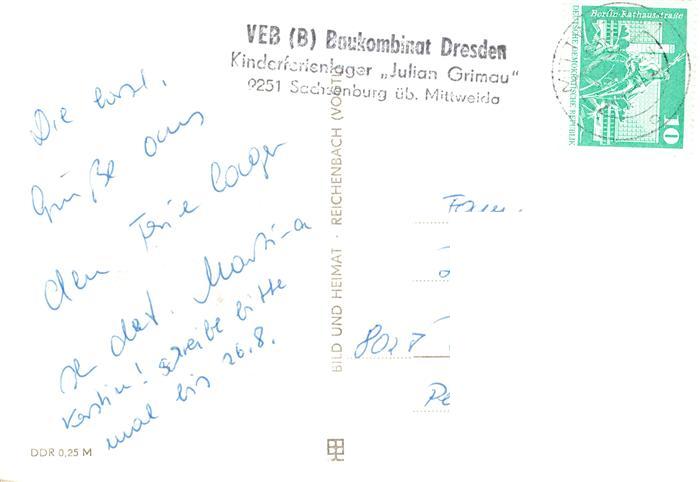 VEB (B) Baukombinat Dresden
Kinderferienlager „Julian Grimau"
9251 Sachsenburg üb. Mittweida
Berlin-Rathausstraße
DEUTSCHE DEMOKRATISCHE REPUBLIK
10
Die herzl.
Grüße aus
dem Ferie lager
Martina
Kerstin! schreibe bitte
mal bis 26.8.
BILD UND HEIMAT · REICHENBACH (VOGTL
Frau
802
DDR 0,25 M